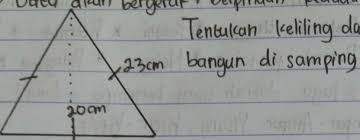 akan
Tentukan keliling da
23cm bangun di samping
20cm